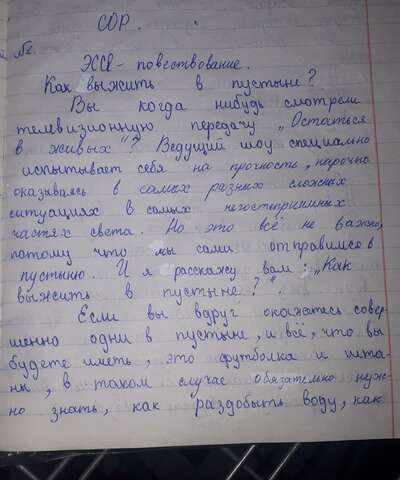 СОР.
№2.
Эссе - повествование.
Как выжить в пустыне?
Вы когда нибудь смотрели
телевизионную передачу „Остаться
в живых“? Ведущий шоу специально
испытывает себя на прочность, нарочно
оказываясь в самых разных сложных
ситуациях в самых негостеприимных
частях света. Но это всё не важно,
потому что мы сами отправимся в
пустыню. И я расскажу вам: „Как
выжить в пустыне?“.
Если вы вдруг окажетесь совер-
шенно одни в пустыне, и всё, что вы
будете иметь, это футболка и шта-
ны, в таком случае обязательно нуж-
но знать, как раздобыть воду, как